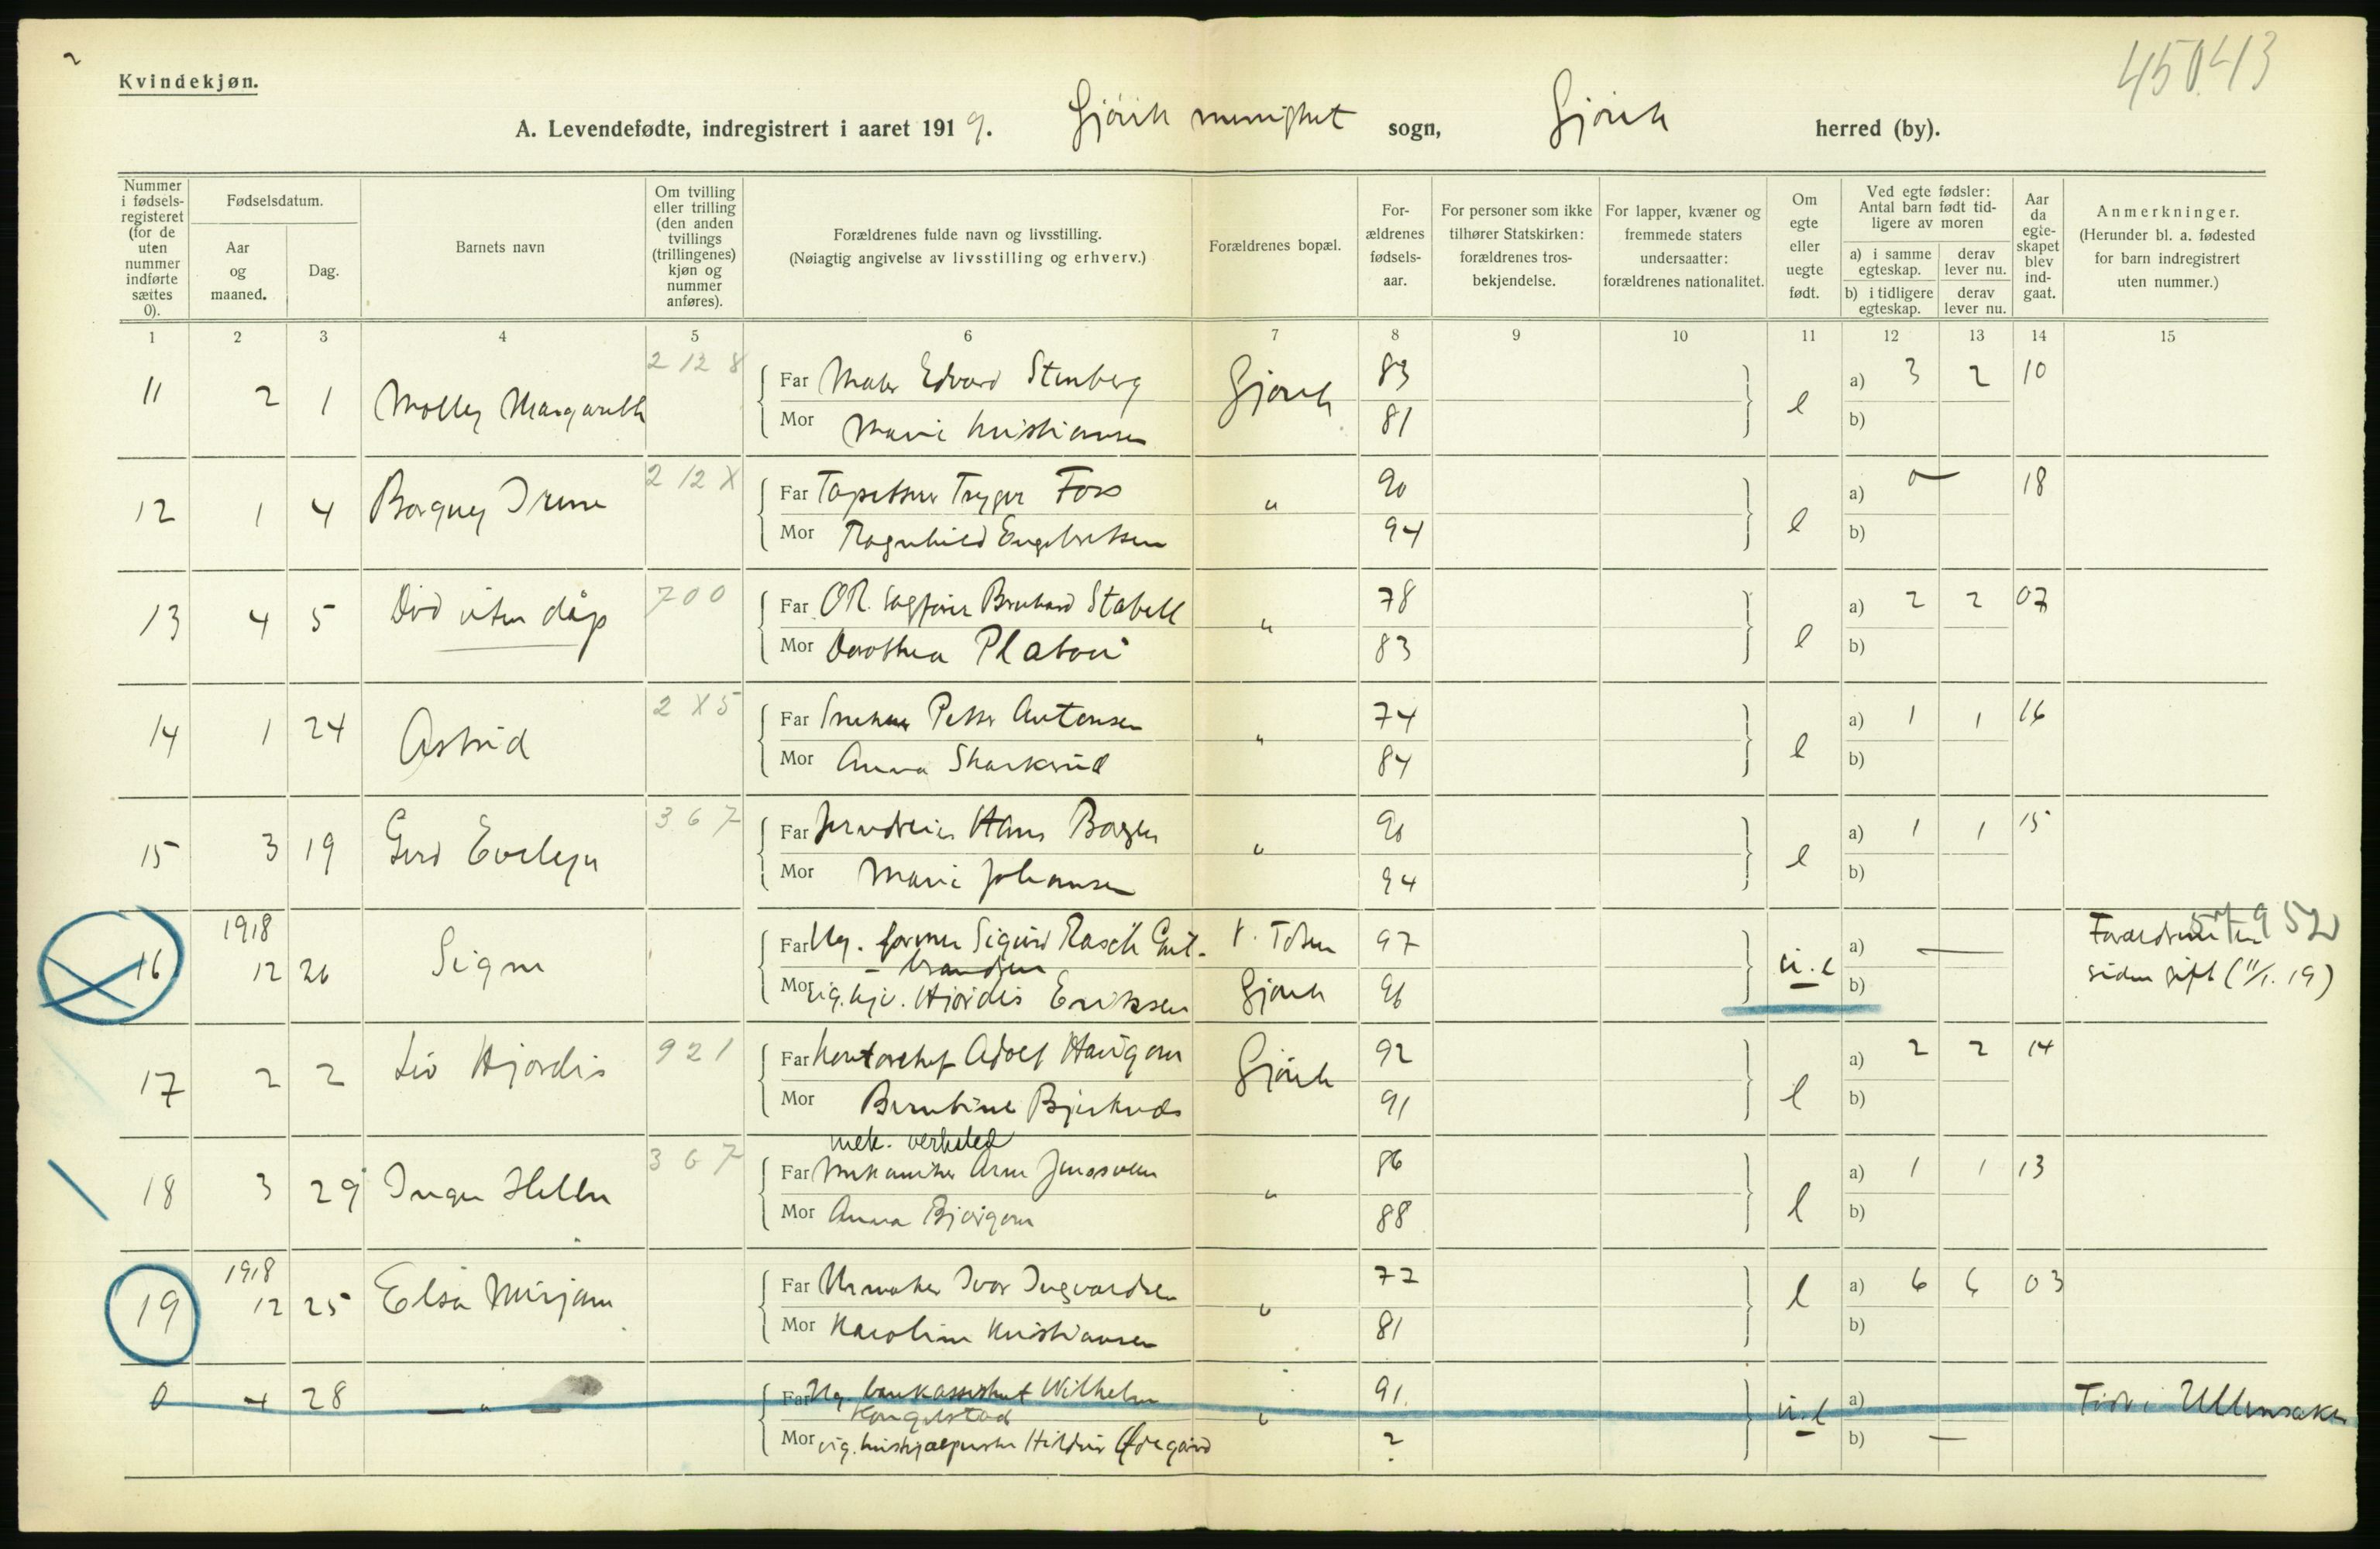 2
Kvindekjøn.
45043
A. Levendefødte, indregistrert i aaret 1919. Gjøvik menighet sogn, Gjøvik herred (by).
Nummer i fødsels-registeret (for de uten nummer indførte sættes 0).
Fødselsdatum.
Aar og maaned.
Dag.
Barnets navn
Om tvilling eller trilling (den anden tvillings (trillingenes) kjøn og nummer anføres).
Forældrenes fulde navn og livsstilling.
(Nøiagtig angivelse av livsstilling og erhverv.)
Forældrenes bopæl.
For-ældrenes fødsels-aar.
For personer som ikke tilhører Statskirken: forældrenes tros-bekjendelse.
For lapper, kvæner og fremmede staters undersaatter: forældrenes nationalitet.
Om egte eller uegte født.
Ved egte fødsler: Antal barn født tid-ligere av moren
a) i samme egteskap.
derav lever nu.
b) i tidligere egteskap.
derav lever nu.
Aar da egte-skapet blev ind-gaat.
Anmerkninger.
(Herunder bl. a. fødested for barn indregistrert uten nummer.)
1 2 3 4 5 6 7 8 9 10 11 12 13 14 15
11 2 1 Molly Margareth 2 12 8 Far Maler Edvard Stenberg Gjøvik 83 e a) 3 2 10
Mor Marie Kristiansen 81 b)
12 1 4 Borgny Irene 2 12 X Far Tapetserer Trygve Foss " 90 e a) 0 18
Mor Ragnhild Engebretsen 94 b)
13 4 5 Død uten dåp 700 Far O.R. sagfører Bernhard Stabell " 78 e a) 2 2 07
Mor Dorothea Platou 83 b)
14 1 24 Astrid 2 X 5 Far Snekker Petter Antonsen " 74 e a) 1 1 16
Mor Anna Skarkerud 84 b)
15 3 19 Gerd Evelyn 3 6 7 Far Jerndreier Hans " 90 e a) 1 1 15
Mor Marie Johansen 94 b)
16 1918 12 26 Signe Far Ug. former Sigurd Rasch Gul- V. Toten 97 u.e a) — Forældrene er
brandsen
Mor ug. hjv. Hjørdis Eriksen Gjøvik 96 b) siden gift (11/1. 19)
17 2 2 Liv Hjørdis 921 Far Kontorchef Adolf Haugom Gjøvik 92 e a) 2 2 14
Mor Berntine 91 b)
mek. verksted
18 3 29 Inger Helene 3 6 7 Far Mekaniker Arne " 86 e a) 1 1 13
Mor Anna 88 b)
19 1918 12 25 Elsa Mirjam Far Urmaker Ivar Ingvardsen " 72 e a) 6 6 03
Mor Karoline Kristiansen 81 b)
0 4 28 — " — Far Ug. bankassistent Wilhelm " 91. u.e a) Født i Ullensaker
Kongelstad
Mor ug. Hildur Ødegård ? b) —